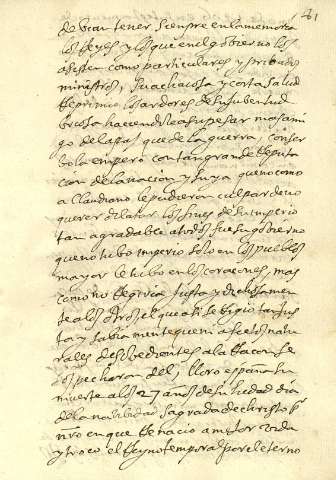 debian tener siempre en la memoria
los Reyes y los que en el gobierno los
asisten como particulares y pribados
ministros, su achacosa y corta salud
Reprimio los ardores de su jubentud
brio
haciendole a su pesar mas ami
go de la paz que de la guerra conser
bola empero con tan grande Reputa
cion de la nacion y suya que no como
a Claudiano le pudieron culpar de no
querer dilatar los fines de su imperio
tan agradable a todos fue su gobierno
que no tubo imperio solo en los pueblos
mayor le tubo en los coraçones, mas
como no Regiria justa y dichosamen
te a los otros el que a si se Rigio tan jus
ta y sabiamente quien a afectos natu
rales desobedientes a la Raçon se
dos pecharan del, lloro españa su
muerte a los 27 años de su hedad dia
de la natibidad sagrada de christo
nro en que Renacio a mejor vida
y troco el Reyno temporal por el eterno